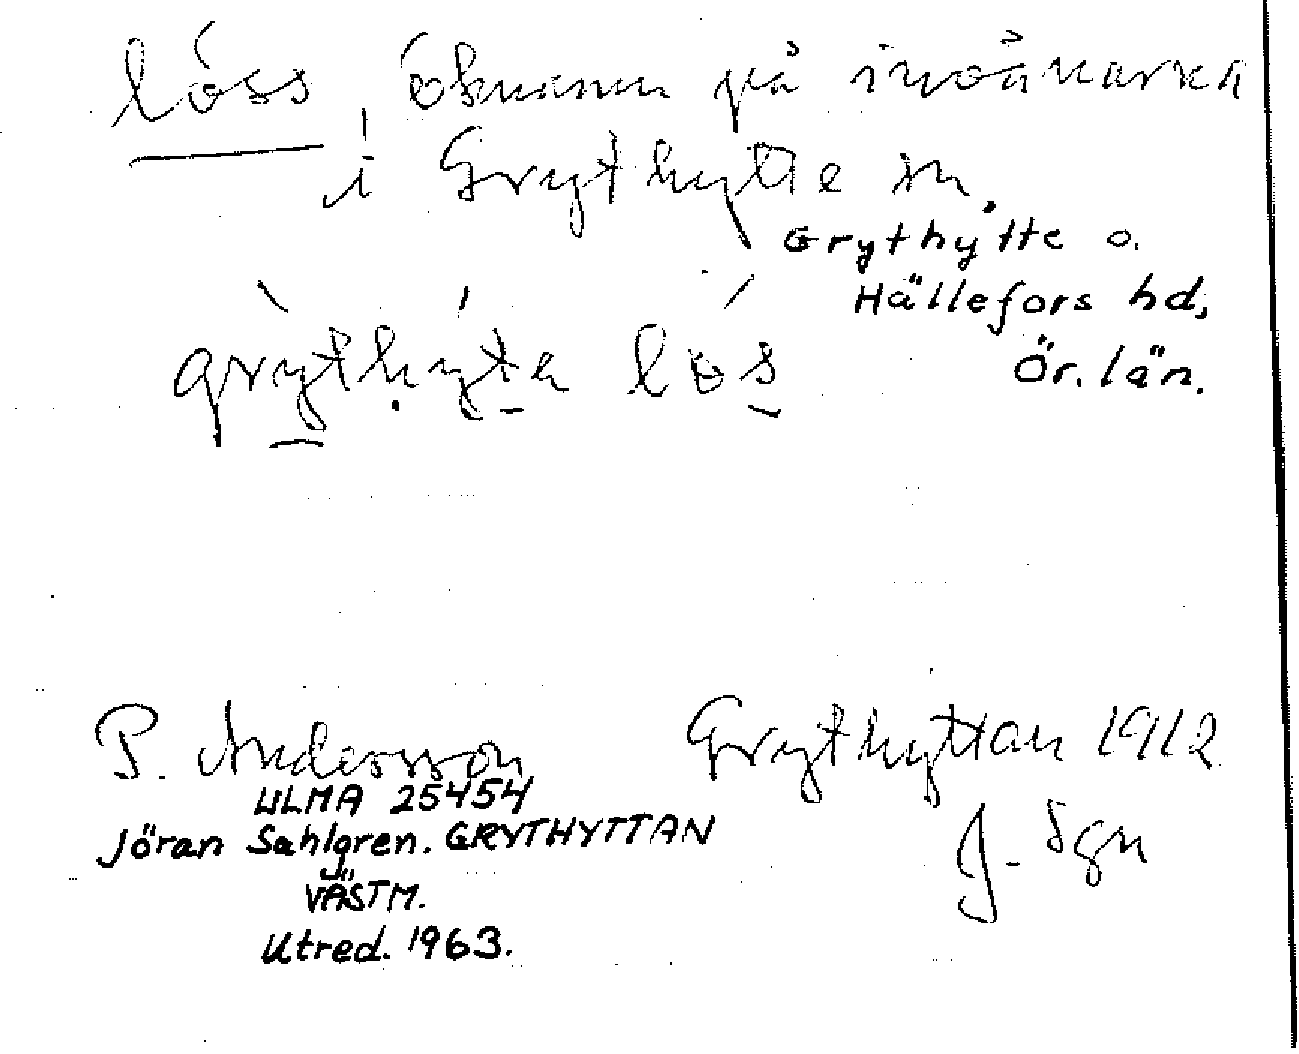 löss, öknamn på invånarna
i Grythytte sn.
Grythytte o.
Hällefors hd,
Ör. län.
grythyta lös
P. Andersson
Grythyttan 1912
ULMA 25454
J. Sgn
Jöran Sahlgren. GRYTHYTTAN
VÄSTM.
Utred. 1963.